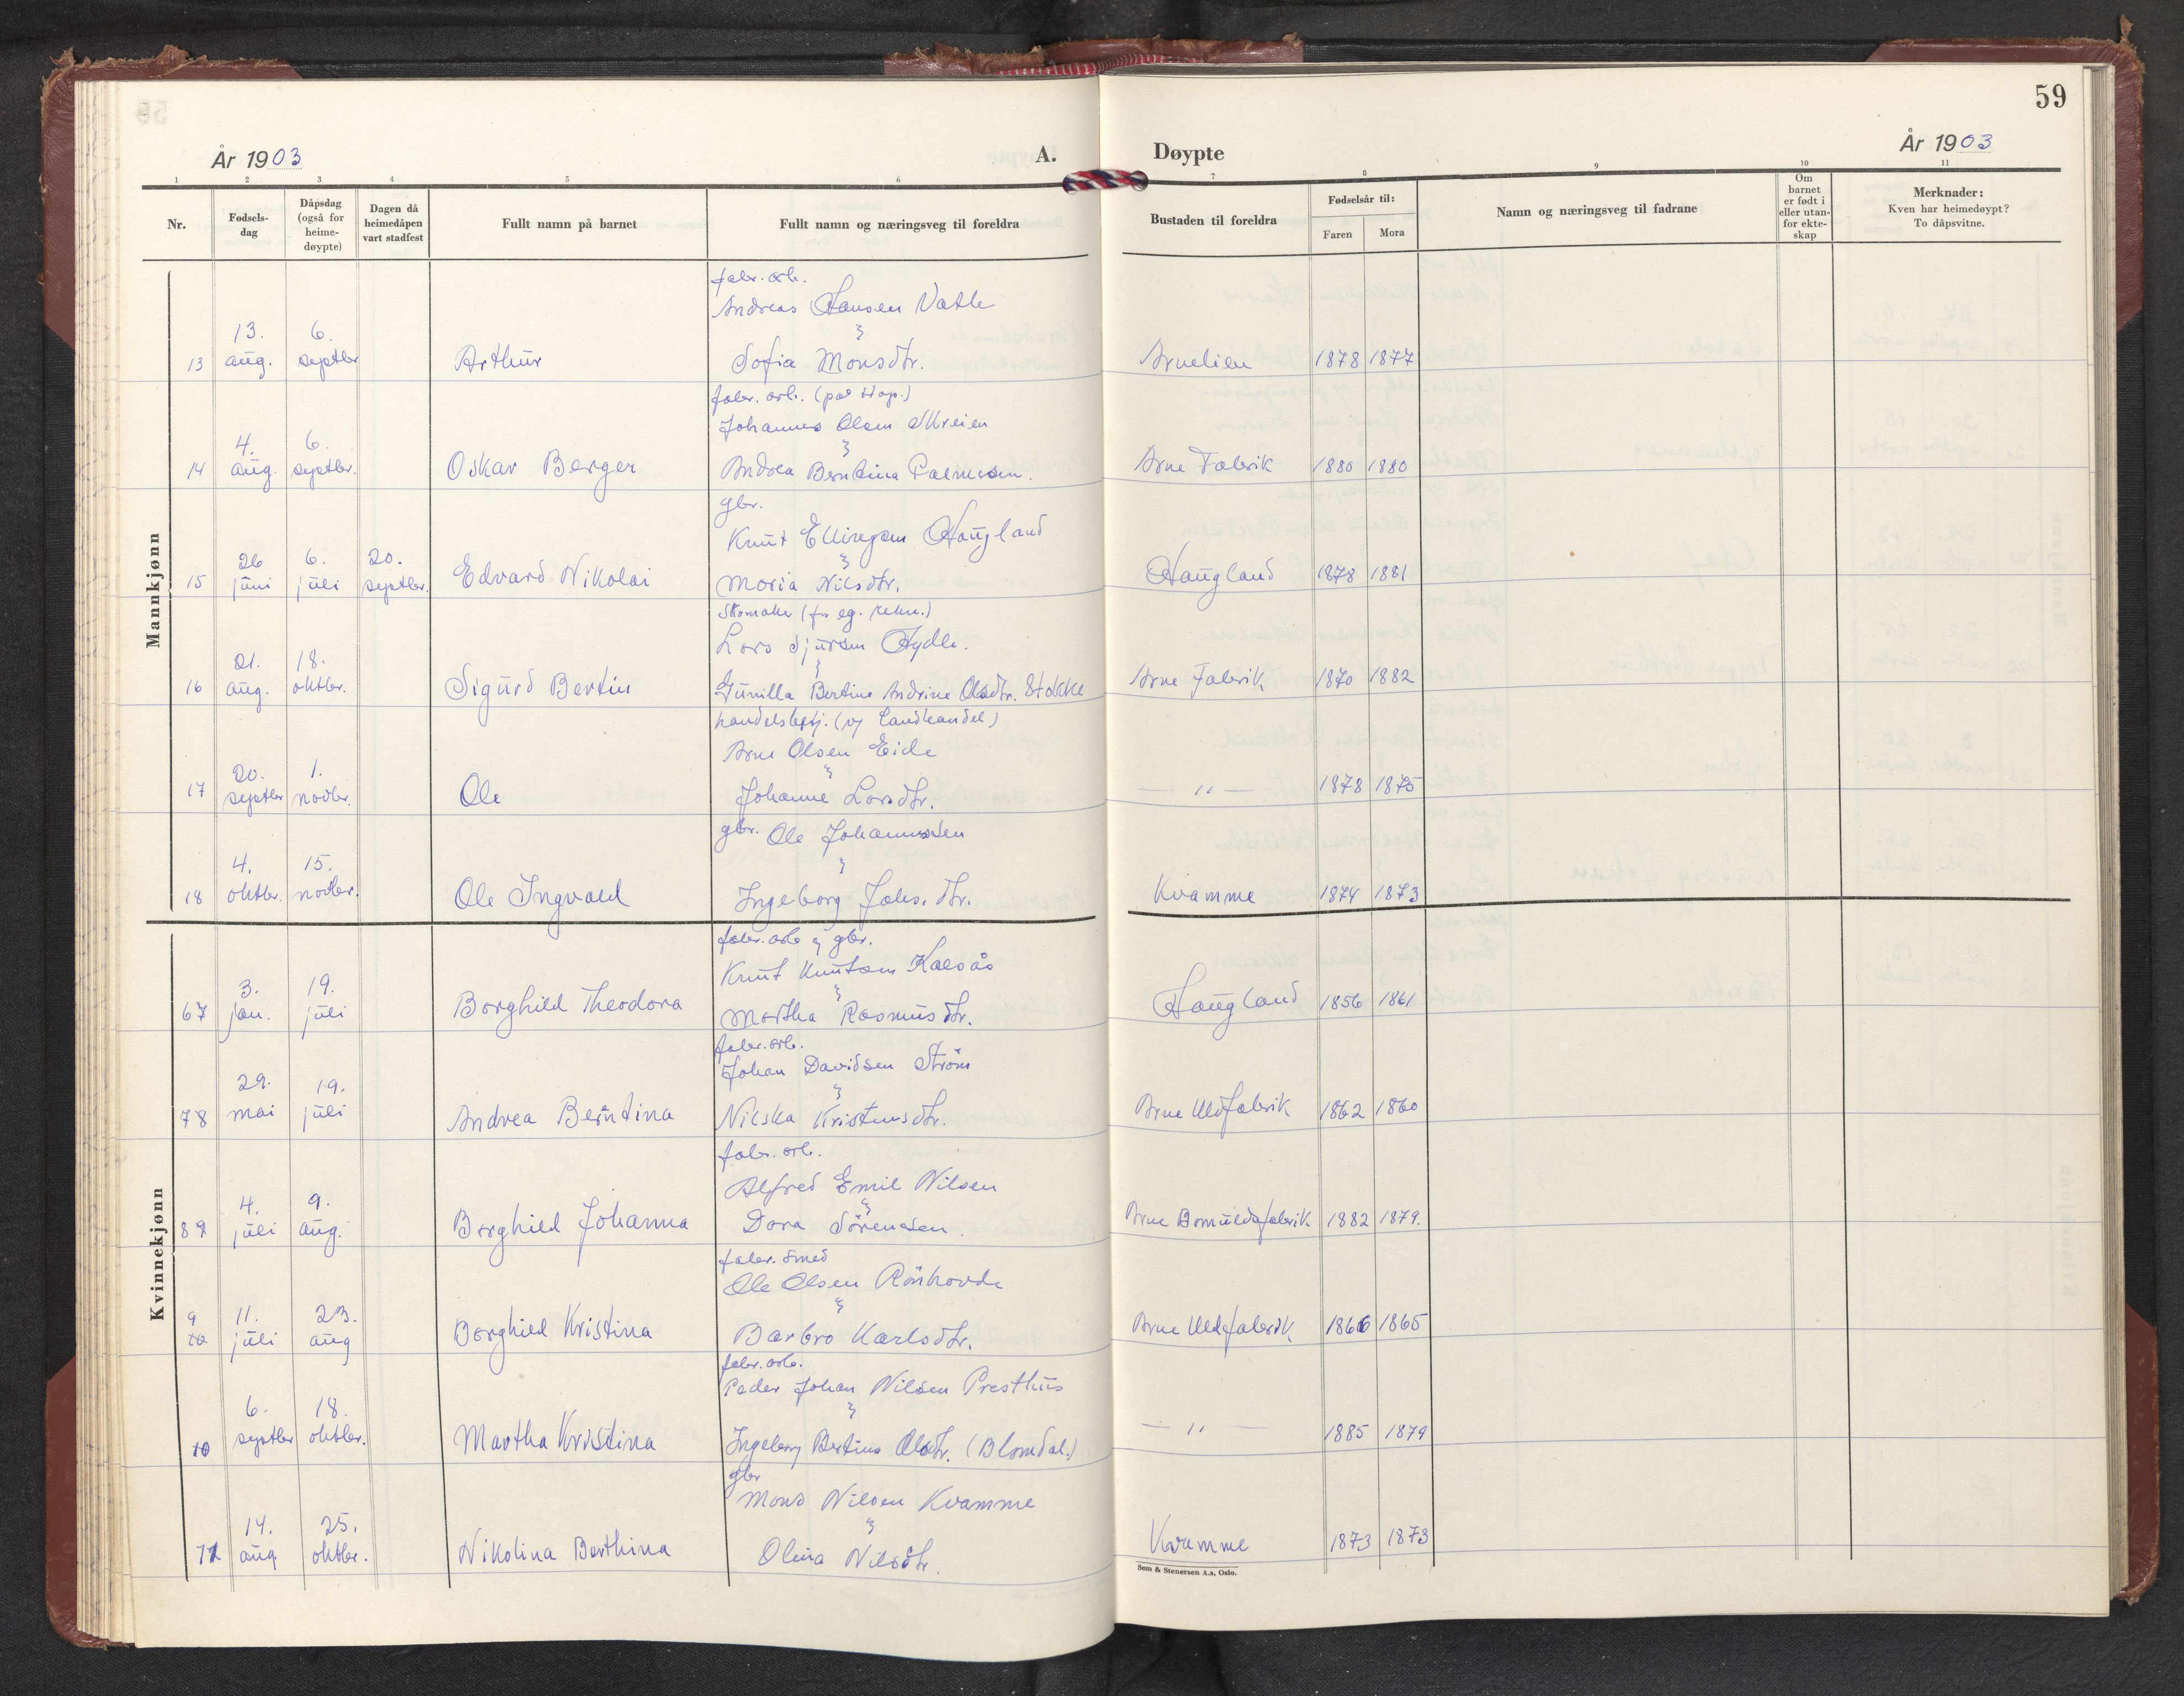 59
År 1903 A. Døypte År 1903
1 2 3 4 5 6 7 8 9 10 11
Nr. Fødsels-dag Dåpsdag (også for heime-døypte) Dagen då heimedåpen vart stadfest Fullt namn på barnet Fullt namn og næringsveg til foreldra Bustaden til foreldra Fødselsår til: Faren Mora Namn og næringsveg til fadrane Om barnet er født i eller utan-for ekte-skap Merknader: Kven har heimedøypt? To dåpsvitne.
Mannkjønn
fabr. arb.
Andreas Hansen Vatle
13 13. aug. 6. septbr Arthur Sofia Monsdtr. Arnelien 1878 1877
fabr. arb. (pap
Johannes Olsen Skreien
14 4. aug. 6. septbr. Oskar Berger Andrea Berntina Palmesen. Arne Fabrik 1880 1880
gbr.
Knut Ellingsen Haugland
15 26 juni 6. juli 20. septbr. Edvard Nikolai Maria Nilsdtr. Haugland 1878 1881
Skomaker (for eg. rekn.)
Lars Sjursen Hylle.
16 21. aug. 18. oktbr. Sigurd Bertin Gunilla Bertine Andrine Olsdtr. Stokke Arne Fabrik 1870 1882
handelsbetj. (v/ landhandel)
Arne Olsen Eide
17 20. septbr 1. novbr. Ole Johanne Larsdtr. — " — 1878 1875
gbr. Ole Johannessen
18 4. oktbr. 15. novbr. Ole Ingvald Ingeborg Johs. dtr. Kvamme 1874 1873
Kvinnekjønn
fabr. arb og gbr.
Knut Knutsen Kalsås
67 3. jan. 19. juli Borghild Theodora Martha Rasmusdtr. Haugland 1856 1861
fabr. arb.
Johan Davidsen Ström
78 29. mai 19. juli Andrea Berntina Nilska Kristensdtr. Arne Uldfabrik 1862 1860
fabr. arb.
Alfred Emil Nilsen
89 4. juli 9. aug. Borghild Johanna Dora Sörensen. Arne Bomuldsfabrik 1882 1879.
fabr. smed
Ole Olsen Rönhovde
9 10 11. juli 23. aug Borghild Kristina Barbro Karlsdtr. Arne Uldfabrik 1866 1865
fabr. arb.
Peder Johan Nilsen Presthus
10 6. septbr 18. oktbr. Martha Kristina Ingeborg Bertine Olsdtr. (Blomdal.) — " — 1885 1879
gbr
Mons Nilsen Kvamme
11 14. aug. 25. oktbr. Nikolina Berthina Olina Nilsdtr. Kvamme 1873 1873
Sem & Stenersen A.s, Oslo.